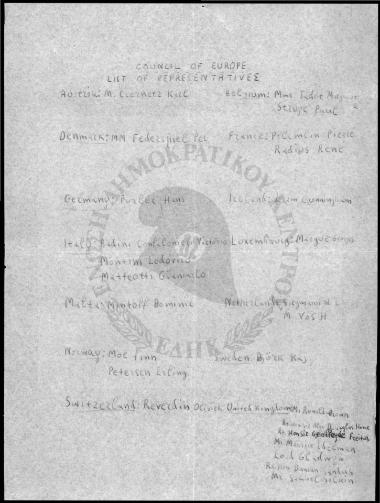 COUNCIL OF EUROPE
LIST OF REPRESENTATIVES
Austria: M. Czernetz Karl
Belgium: Mme
Struye Paul
Denmark: MM Federspiel Per
France: Pflimlin Pierre
Radius René
Germany: Furler Hans
Iceland: Cunningham
Italy: Radini Confalonieri Vittorio
Montini Lodovico
Matteotti Gianmatteo
Luxembourg: Margue Georges
Malta: Mintoff Dominic
Netherlands:
M. Vos H
Norway: Moe Finn
Petersen Erling
Sweden Björk Kaj
Switzerland: Reverdin Olivier
United Kingdom: Mr Ronald Brown
Douglas Home
Geoffroy de Freitas
Mr Maurice Edelman
Lord Gladwyn
Duncan Sandys
Mr Silkin
ΕΝΩΣΗ ΔΗΜΟΚΡΑΤΙΚΟΥ ΚΕΝΤΡΟΥ
ΕΔΗΚ